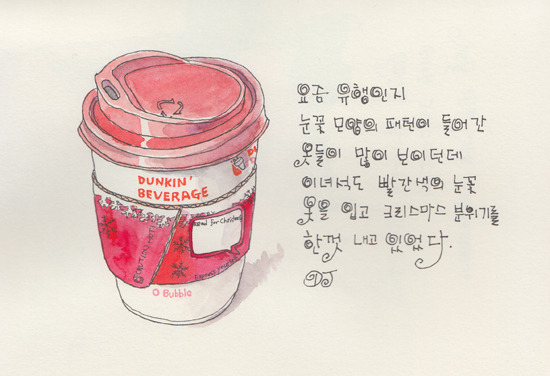 DUNKIN'
BEVERAGE
CAUTION-HOT!
O Bubble
요즘 유행인지
눈꽃 모양의 패턴이 들어간
옷들이 많이 보이던데
이녀석도 빨간색의 눈꽃
옷을 입고 크리스마스 분위기를
한껏 내고 있었다.
DJ